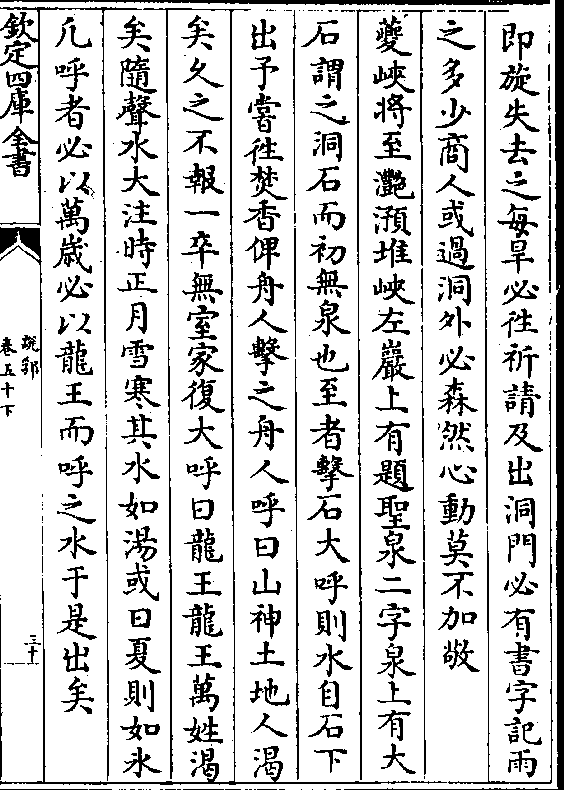 即旋失去之每旱必徃祈請及出洞門必有書字記雨
之多少商人或過洞外必森然心動莫不加敬
夔峽將至灧澦堆峽左巖上有題聖泉二字泉上有大
石謂之洞石而初無泉也至者擊石大呼則水自石下
出予嘗徃焚香俾舟人擊之舟人呼曰山神土地人渴
矣久之不報一卒無室家復大呼曰龍王龍王萬姓渴
矣隨聲水大注時正月雪寒其水如湯或曰夏則如氷
凡呼者必以萬歳必以龍王而呼之水于是出矣
欽定四庫全書
説郛
卷五十下
三十